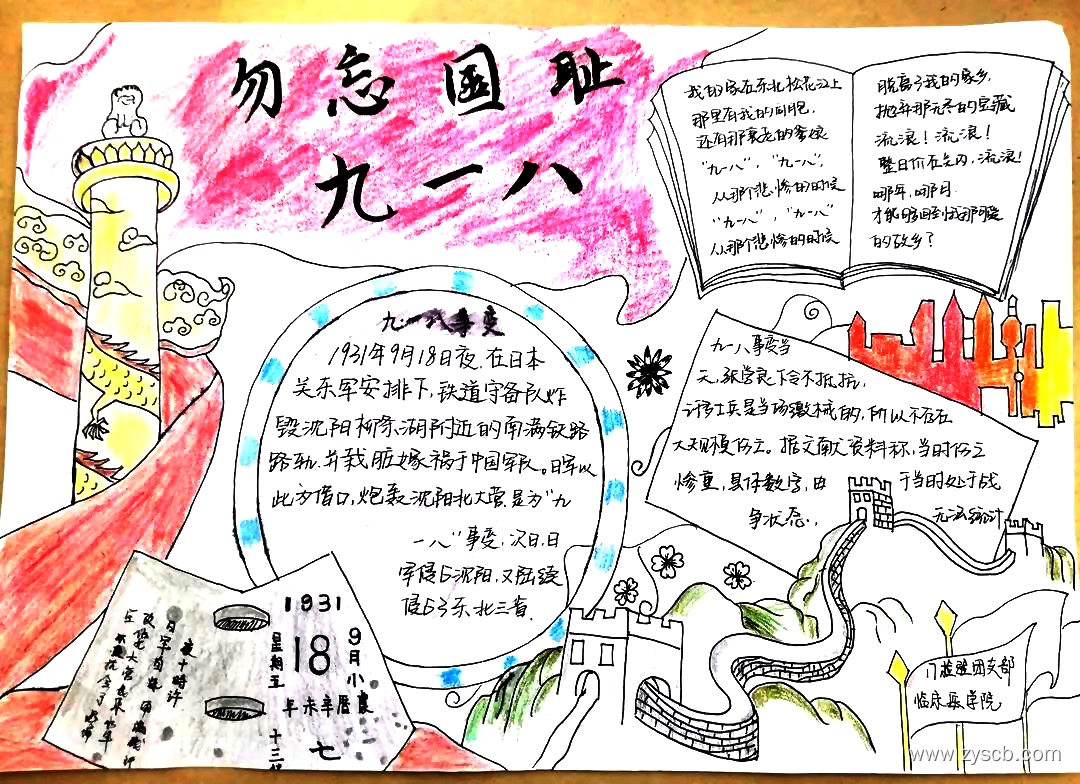 勿忘国耻
九一八
我的家在东北松花江上
那里有我的同胞,
还有那衰老的爹娘
"九一八","九一八",
从那个悲惨的时候
"九一八","九一八"
从那个悲惨的时候
脱离了我的家乡,
抛弃那无尽的宝藏
流浪!流浪!
整日价在关内,流浪!
哪年,哪月
才能够回到我那可爱
的故乡?
九一八事变
1931年9月18日夜,在日本
关东军安排下,铁道守备队炸
毁沈阳柳条湖附近的南满铁路
路轨,并栽脏嫁祸于中国军队。日军以
此为借口,炮轰沈阳北大营,是为"九
一八"事变,次日,日
军侵占沈阳,又陆续
侵占了东北三省.
九一八事变当
天,张学良下令不抵抗,
士兵是当场缴械的,所以不存在
大规模伤亡。据文献资料称,当时伤亡
惨重,具体数字,由于当时处于战
争状态,无法统计
1931
9月小
18
星期五
年未辛曆農
七
十三
夜十時許
门检验团支部
临床医学院
www.zyscb.com